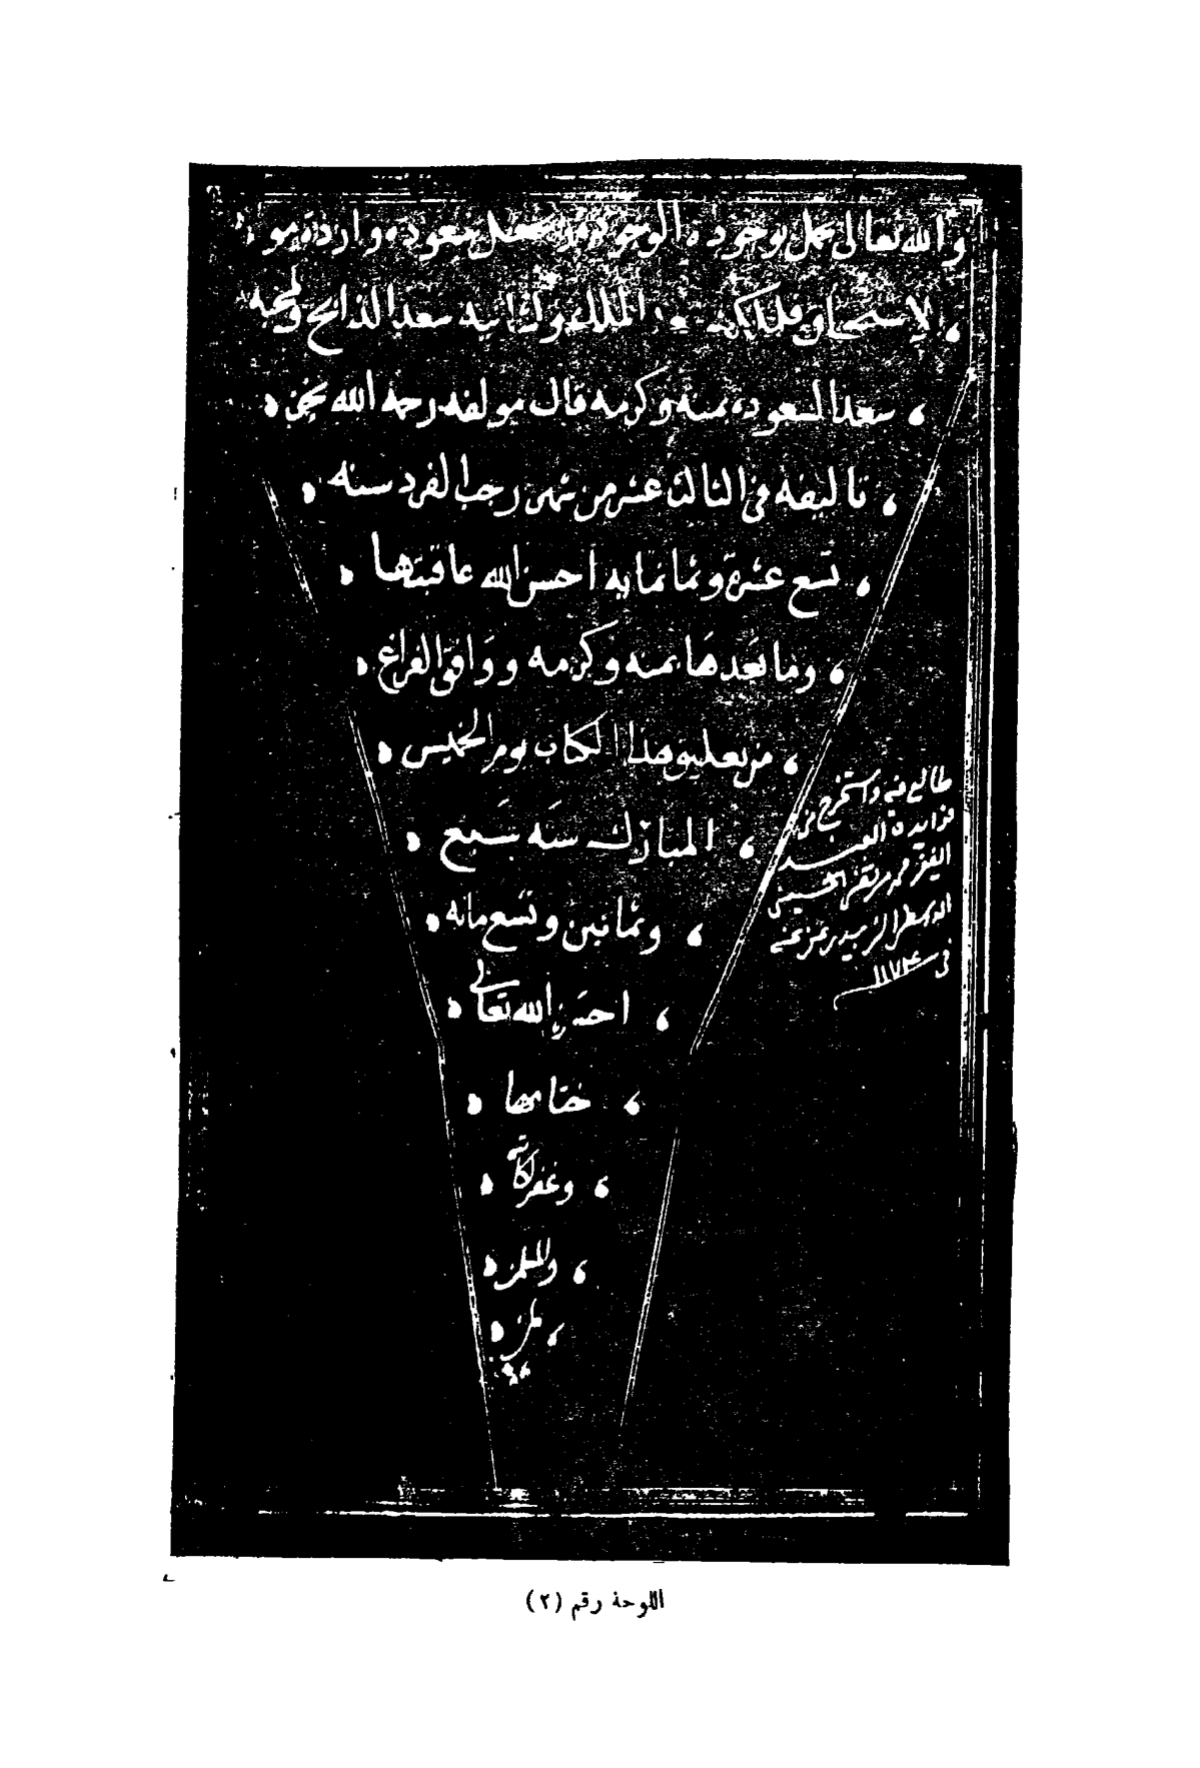 والله تعالى يجمل بوجوده الوجود ويجعل سعوده واردة مو
الاستحقاق فلكل الملك وشانيه سعد الذابح ومحبه
سعد السعود بمنه وكرمه قال مولفه رحمه الله نجز
تاليفه في الثالث عشر من شهر رجب الفرد سنه
تسع عشرة وثمانمايه احسن الله عاقبتها
وما بعدها بمنه وكرمه ووافق الفراغ
من تعليق هذا الكتاب يوم الخميس
المبارك سنه سبع
وثمانين وتسع مائه
احسن الله تعالى
ختامها
وغفر لكاتبه
وللمسلمين
طالع فيه واستخرج من
فوايده العبد
الفقير محمد مرتضى الحسيني
الزبيدي غفر عنه
في ١١٧٤
اللوحة رقم (٢)